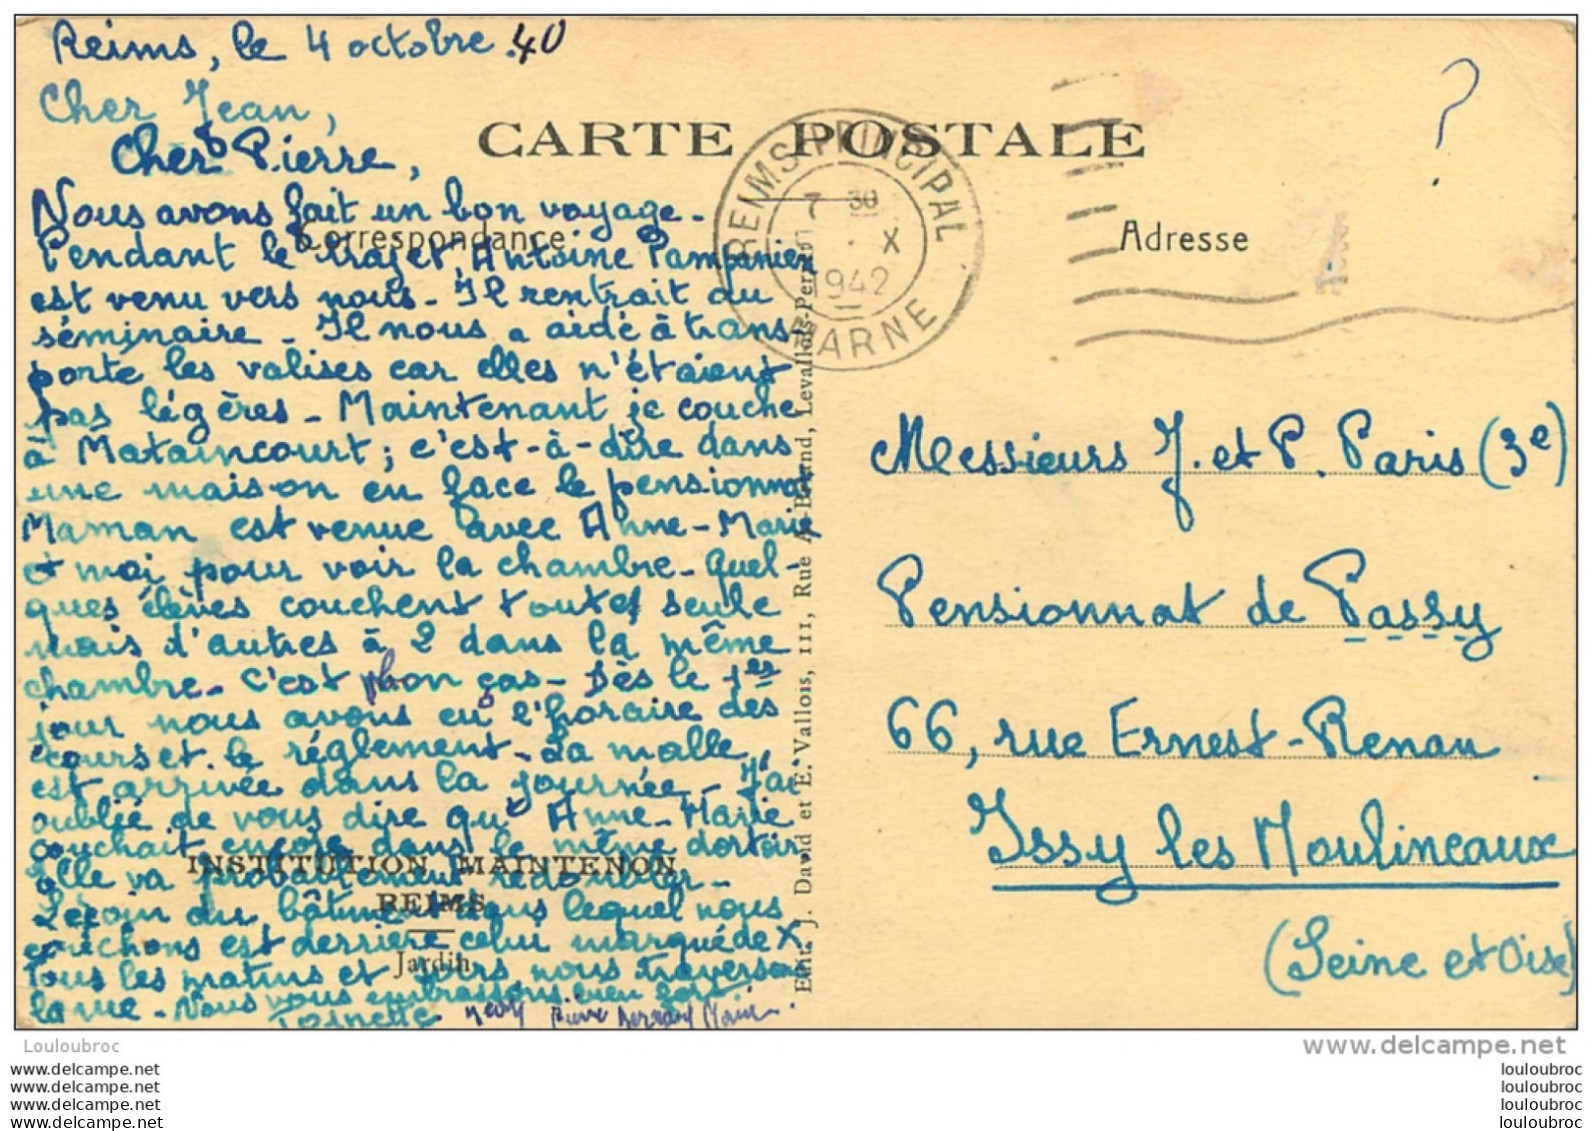 Reims, le 4 octobre .40
Cher Jean,
Cher Pierre,
CARTE POSTALE
Correspondance
Adresse
?
REIMS PRINCIPAL
7 30
X
1942
MARNE
Nous avons fait un bon voyage -
Pendant le trajet, Antoine Pampanien
est venu vers nous - Il rentrait du
séminaire - Il nous a aidé à trans-
porté les valises car elles n'étaient
pas légères - Maintenant je couche
à Mataincourt; c'est-à-dire dans
une maison en face le pensionnat
Maman est venue avec Anne-Marie
et moi pour voir la chambre - Quel-
ques élèves couchent toutes seule
mais d'autres à 2 dans la même
chambre - C'est selon ças - Dès le 1er
jour nous avons eu l'horaire des
cours et le réglement - La malle
est arrivée dans la journée - J'ai
oublié de vous dire qu' Anne-Marie
couchait encore dans le même dortoir
Elle va probablement redoubler -
Le coin du bâtiment dans lequel nous
couchons est derrière celui marqué de X
Tous les matins et soirs nous traversons
la rue - Nous vous embrassons bien fort
Toinette Pierre Bernard Marie
INSTITUTION MAINTENON
REIMS
Jardin
Edit. J. David et E. Vallois, 111, Rue A.-Briand, Levallois-Perret
Messieurs J. et P. Paris (3e)
Pensionnat de Passy
66, rue Ernest-Renan
Issy les Moulineaux
(Seine et Oise)
Louloubroc
www.delcampe.net
www.delcampe.net
www.delcampe.net
www.delcampe.net
www.delcampe.net
louloubroc
louloubroc
louloubroc
louloubroc